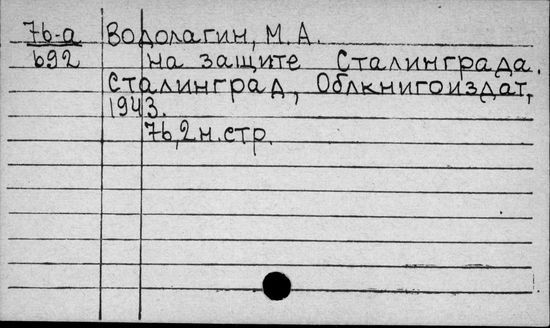 76-а Водолагин, М.А.
692 на защите Сталинграда.
Сталинград, Облкнигоиздат,
1943.
76,2н.стр.